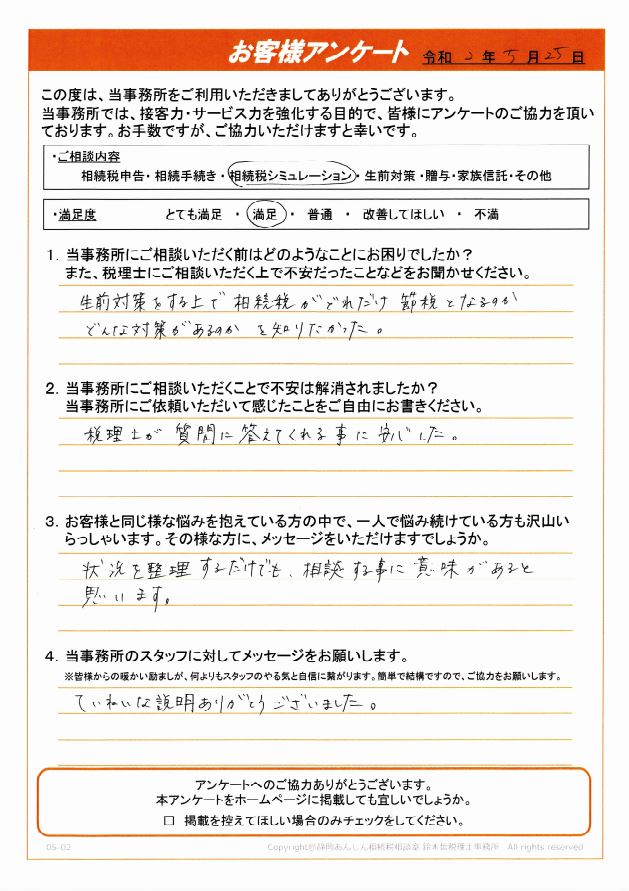 お客様アンケート 令和 2 年 5 月 25 日
この度は、当事務所をご利用いただきましてありがとうございます。
当事務所では、接客力・サービス力を強化する目的で、皆様にアンケートのご協力を頂い
ております。お手数ですが、ご協力いただけますと幸いです。
・ご相談内容
相続税申告・相続手続き・相続税シミュレーション・生前対策・贈与・家族信託・その他
・満足度 とても満足 ・ 満足 ・ 普通 ・ 改善してほしい ・ 不満
1. 当事務所にご相談いただく前はどのようなことにお困りでしたか？
また、税理士にご相談いただく上で不安だったことなどをお聞かせください。
生前対策をする上で相続税がどれだけ節税となるのか
どんな対策があるのかを知りたかった。
2. 当事務所にご相談いただくことで不安は解消されましたか？
当事務所にご依頼いただいて感じたことをご自由にお書きください。
税理士が質問に答えてくれる事に安心した。
3. お客様と同じ様な悩みを抱えている方の中で、一人で悩み続けている方も沢山い
らっしゃいます。その様な方に、メッセージをいただけますでしょうか。
状況を整理するだけでも、相談する事に意味があると
思います。
4. 当事務所のスタッフに対してメッセージをお願いします。
※皆様からの暖かい励ましが、何よりもスタッフのやる気と自信に繋がります。簡単で結構ですので、ご協力をお願いします。
ていねいな説明ありがとうございました。
アンケートへのご協力ありがとうございます。
本アンケートをホームページに掲載しても宜しいでしょうか。
□ 掲載を控えてほしい場合のみチェックをしてください。
05-02 Copyright@静岡あんしん相続税相談室 鈴木哲税理士事務所 All rights reserved